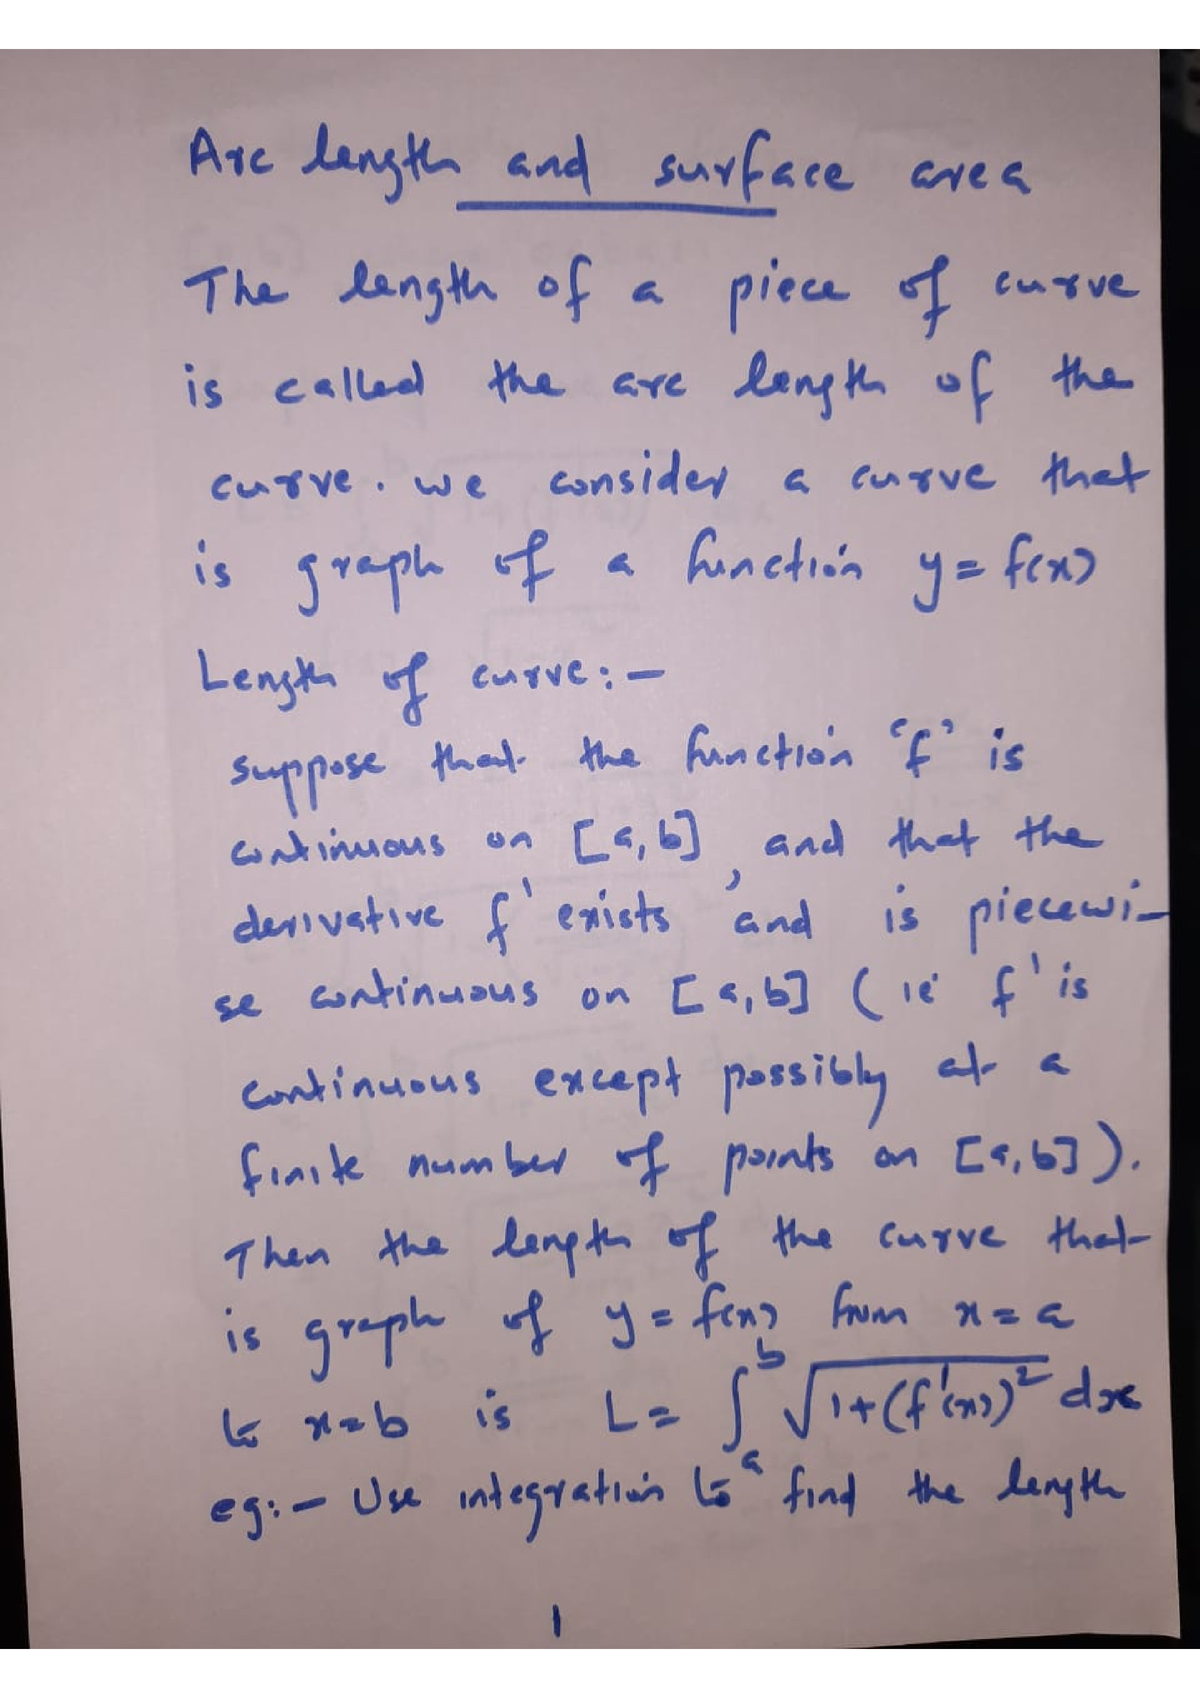 Arc length and surface area
The length of a piece of curve
is called the arc length of the
curve. we consider a curve that
is graph of a function y = f(x)
Length of curve:-
suppose that the function 'f' is
continuous on [a,b], and that the
derivative f' exists and is piecewi-
se continuous on [a,b] (ie f' is
continuous except possibly at a
finite number of points on [a,b]).
Then the length of the curve that
is graph of y = f(x) from x = a
to x = b is L = ∫ₐᵇ √(1+(f'(x))²) dx
eg:- Use integration to find the length
1